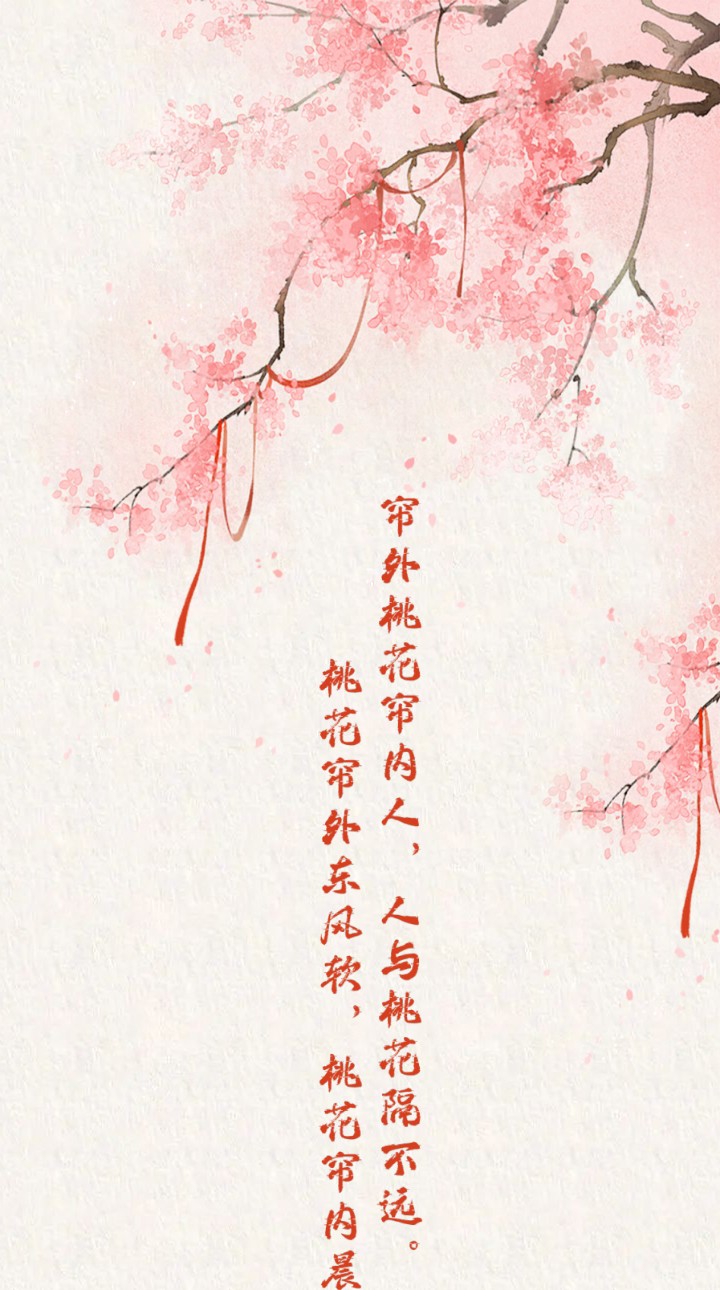 帘外桃花帘内人，人与桃花隔不远。
桃花帘外东风软，桃花帘内晨